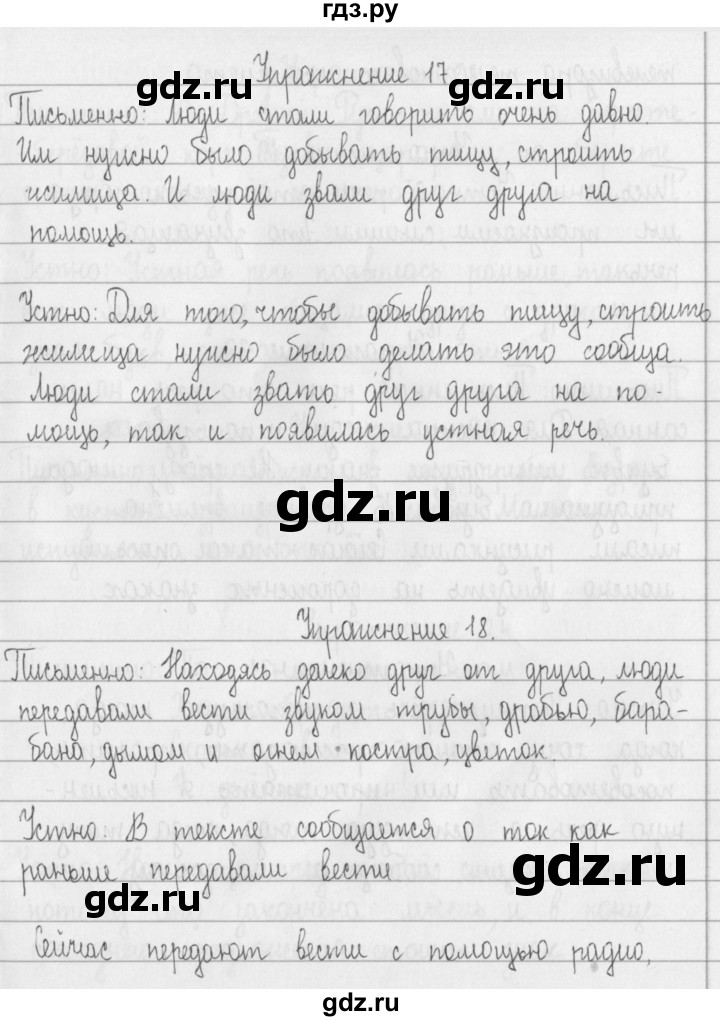 гдз.ру
Упражнение 17
gdz.ru gdz.ru
Письменно: Люди стали говорить очень давно.
Им нужно было добывать пищу, строить
жилища. И люди звали друг друга на
помощь.
Устно: Для того, чтобы добывать пищу, строить
жилища нужно было делать это сообща.
Люди стали звать друг друга на по-
мощь, так и появилась устная речь.
gdz.ru
Упражнение 18.
Письменно: Находясь далеко друг от друга, люди
передавали вести звуком трубы, дробью, бара-
бана, дымом и огнем костра, цветок.
Устно: В тексте сообщается о том как
раньше передавали вести
gdz.ru gdz.ru
Сейчас передают вести с помощью радио,
gdz.ru